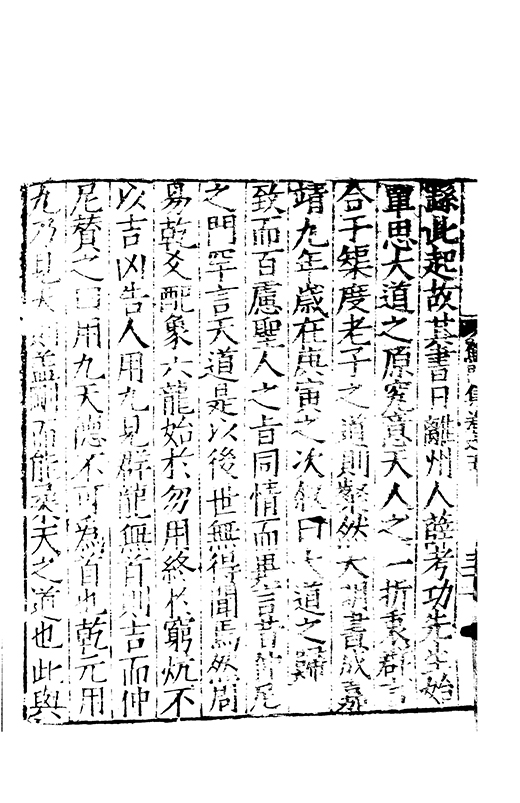 繇此起故其書曰離州人薛考功先生始
覃思大道之原究意天人之一折衷群言
合于榘度老子之道則粲然大明書成嘉
靖九年歲在庚寅之次叙曰大道之歸
致而百慮聖人之旨同情而異言昔仲尼
之門罕言天道是以後世無得聞焉然周
易乾爻配象六龍始於勿用終於窮炕不
以吉凶告人用九見群龍無首則吉而仲
尼賛之曰用九天德不可為首也乾元用
九乃見天則蓋剛而能柔天之道也此與
集卷之五